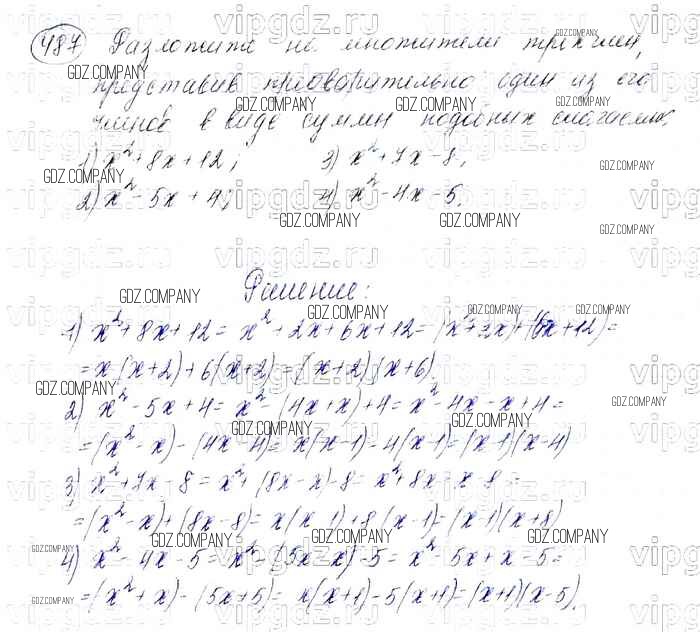 487 Разложите на множители трёхчлен,
представив предварительно один из его
членов в виде суммы подобных слагаемых.
1) x²+8x+12; 3) x²+7x-8;
2) x²-5x+4; 4) x²-4x-5.
Решение:
1) x²+8x+12= x²+2x+6x+12=(x²+2x)+(6x+12)=
=x(x+2)+6(x+2)=(x+2)(x+6)
2) x²-5x+4=x²-(4x+x)+4=x²-4x-x+4=
=(x²-x)-(4x-4)=x(x-1)-4(x-1)=(x-1)(x-4)
3) x²+7x-8=x²+(8x-x)-8=x²+8x-x-8=
=(x²-x)+(8x-8)=x(x-1)+8(x-1)=(x-1)(x+8)
4) x²-4x-5=x²-(5x-x)-5=x²-5x+x-5=
=(x²+x)-(5x+5)=x(x+1)-5(x+1)=(x+1)(x-5).
GDZ.COMPANY
vipgdz.ru